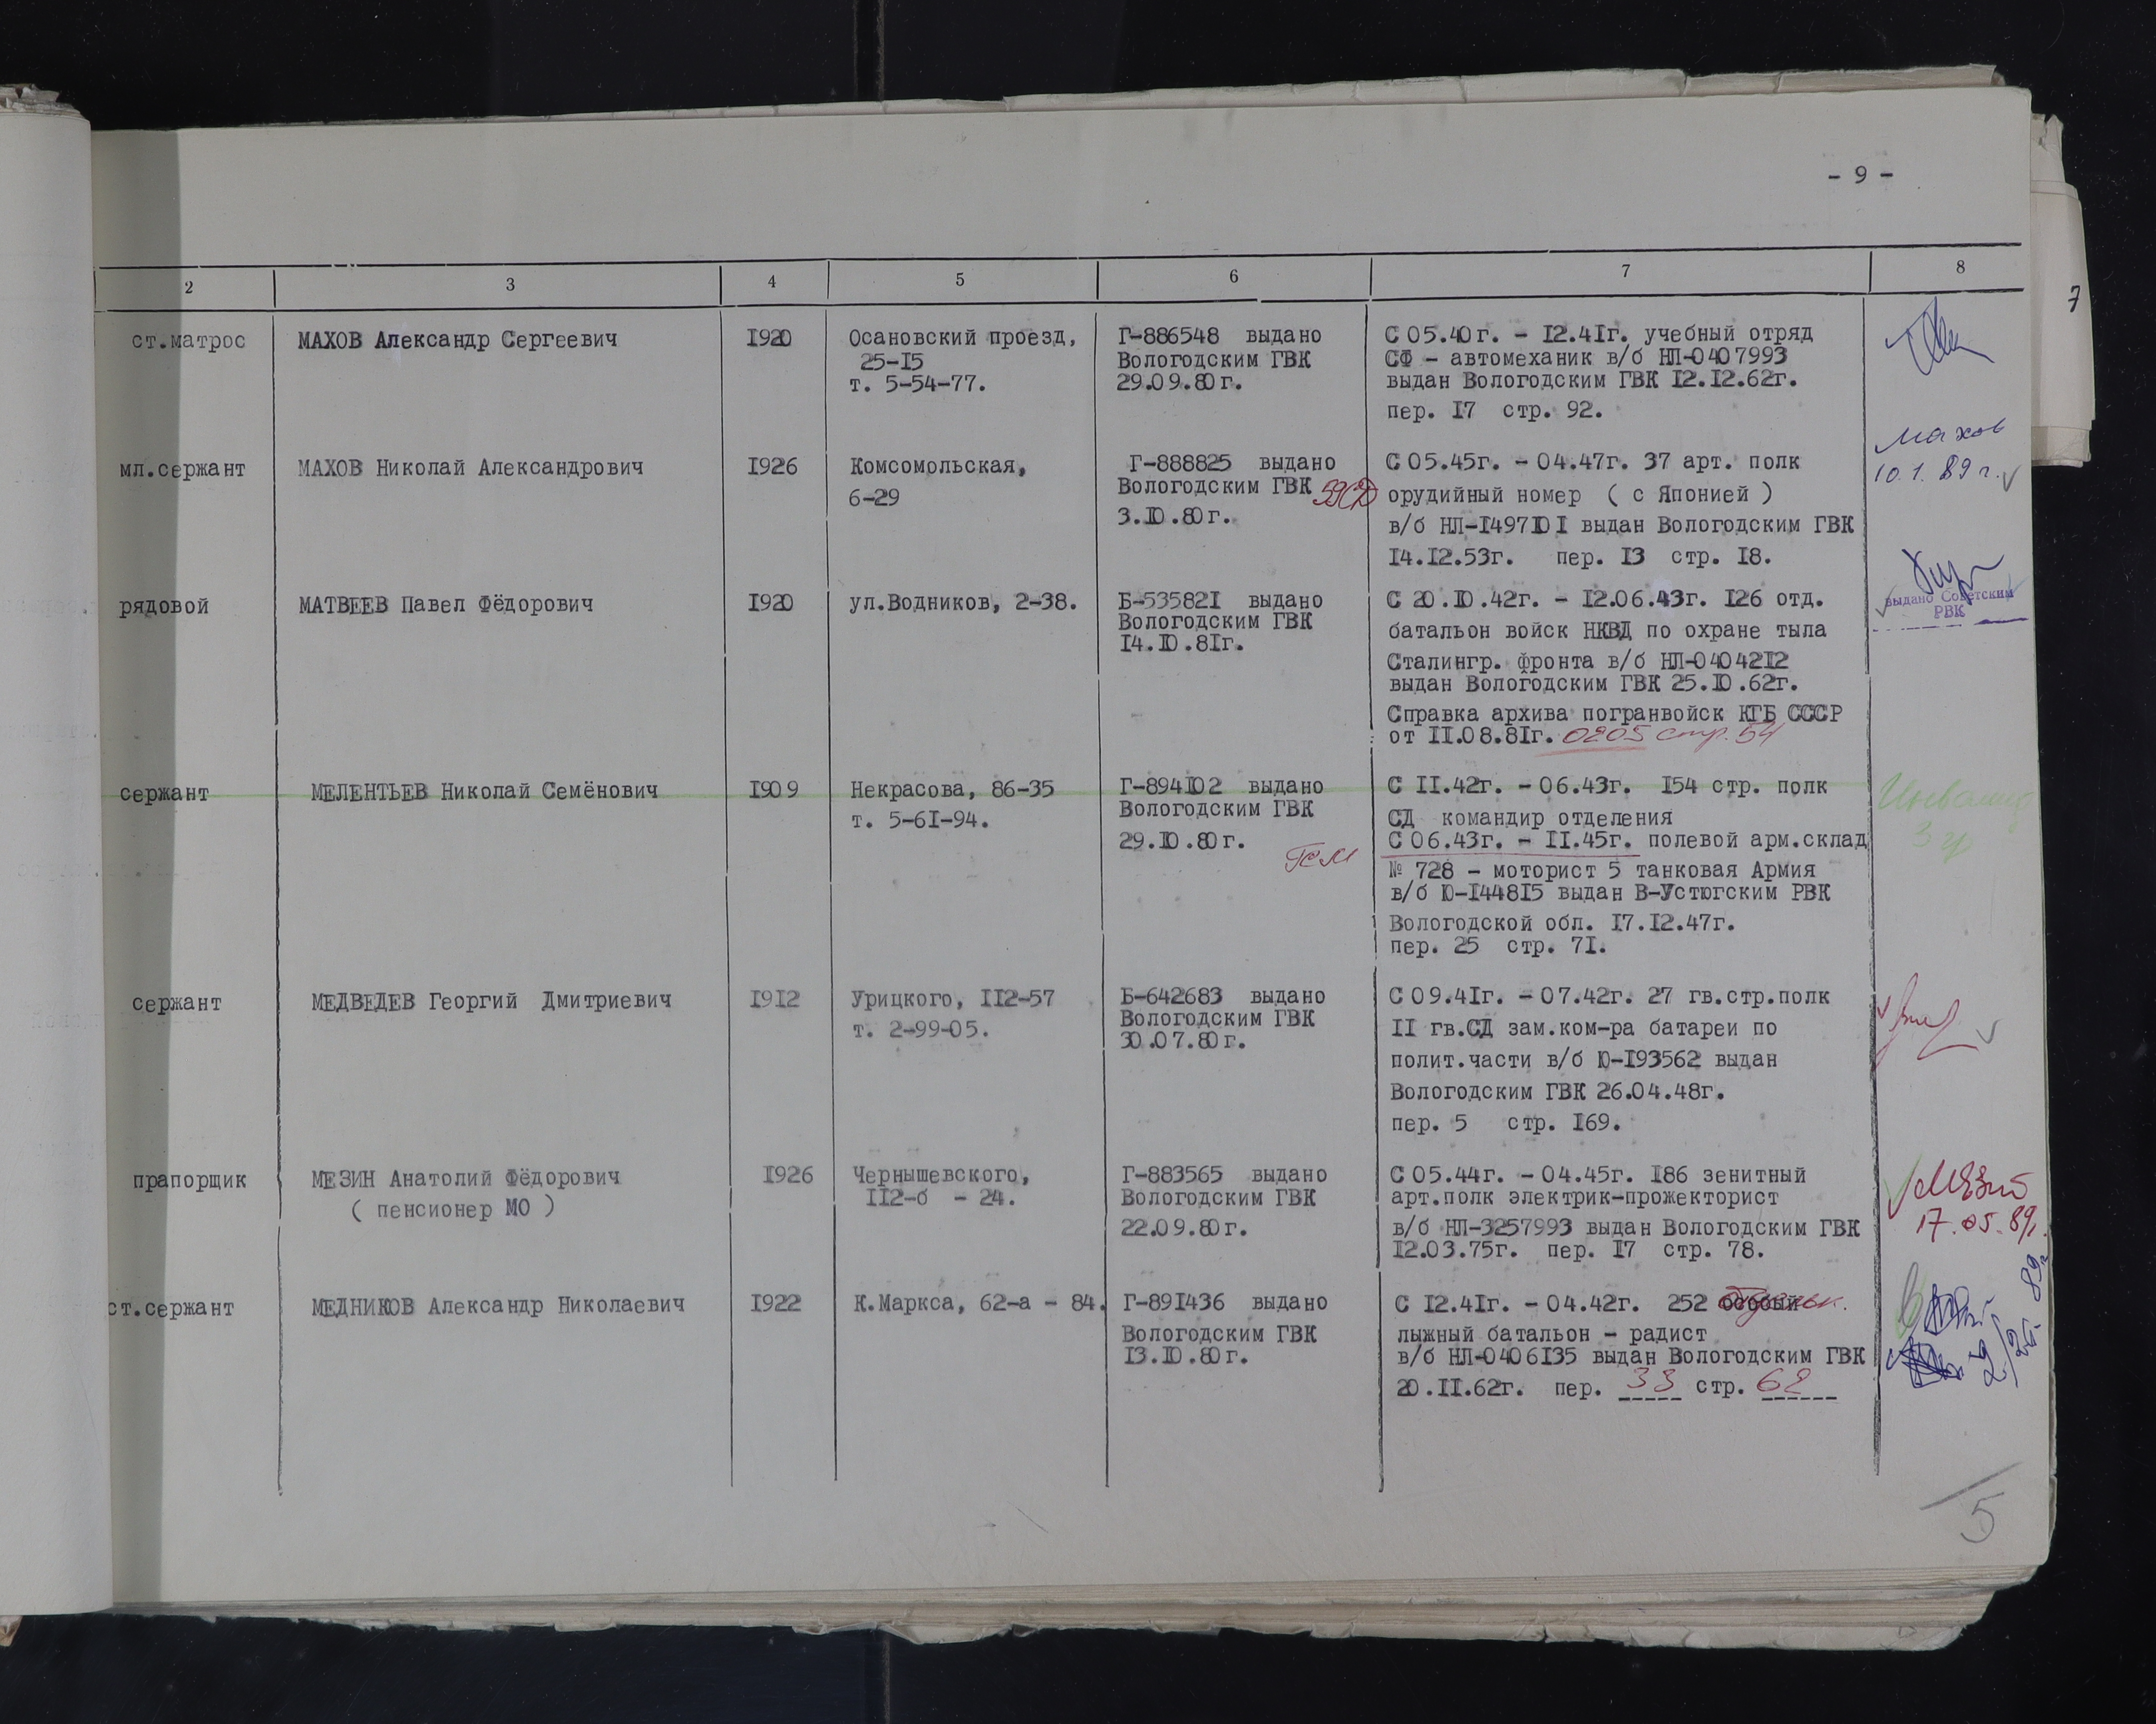 - 9 -
7
2 3 4 5 6 7 8
ст.матрос
МАХОВ Александр Сергеевич
1920
Осановский проезд,
25-15
т. 5-54-77.
Г-886548 выдано
Вологодским ГВК
29.09.80г.
С 05.40г. - 12.41г. учебный отряд
СФ - автомеханик в/б НЛ-0407993
выдан Вологодским ГВК 12.12.62г.
пер. 17 стр. 92.
мл.сержант
МАХОВ Николай Александрович
1926
Комсомольская,
6-29
Г-888825 выдано
Вологодским ГВК
3.10.80г.
С 05.45г. - 04.47г. 37 арт. полк
орудийный номер ( с Японией )
в/б НЛ-1497101 выдан Вологодским ГВК
14.12.53г. пер. 13 стр. 18.
Махов
10.1.89г.
рядовой
МАТВЕЕВ Павел Фёдорович
1920
ул.Водников, 2-38.
Б-535821 выдано
Вологодским ГВК
14.10.81г.
С 20.10.42г. - 12.06.43г. 126 отд.
батальон войск НКВД по охране тыла
Сталингр. фронта в/б НЛ-0404212
выдан Вологодским ГВК 25.10.62г.
Справка архива погранвойск КГБ СССР
от 11.08.81г. 0205 стр. 54
выдано Советским
РВК
сержант
МЕЛЕНТЬЕВ Николай Семёнович
1909
Некрасова, 86-35
т. 5-61-94.
Г-894102 выдано
Вологодским ГВК
29.10.80г.
С 11.42г. - 06.43г. 154 стр. полк
СД командир отделения
С 06.43г. - 11.45г. полевой арм.склад
№ 728 - моторист 5 танковая Армия
в/б Ю-144815 выдан В-Устюгским РВК
Вологодской обл. 17.12.47г.
пер. 25 стр. 71.
Инвалид
3 гр
сержант
МЕДВЕДЕВ Георгий Дмитриевич
1912
Урицкого, 112-57
т. 2-99-05.
Б-642683 выдано
Вологодским ГВК
30.07.80г.
С 09.41г. - 07.42г. 27 гв.стр.полк
11 гв.СД зам.ком-ра батареи по
полит.части в/б Ю-193562 выдан
Вологодским ГВК 26.04.48г.
пер. 5 стр. 169.
прапорщик
МЕЗИН Анатолий Фёдорович
( пенсионер МО )
1926
Чернышевского,
112-б - 24.
Г-883565 выдано
Вологодским ГВК
22.09.80г.
С 05.44г. - 04.45г. 186 зенитный
арт.полк электрик-прожекторист
в/б НЛ-3257993 выдан Вологодским ГВК
12.03.75г. пер. 17 стр. 78.
17.05.89г.
ст.сержант
МЕДНИКОВ Александр Николаевич
1922
К.Маркса, 62-а - 84.
Г-891436 выдано
Вологодским ГВК
13.10.80г.
С 12.41г. - 04.42г. 252 особый
лыжный батальон - радист
в/б НЛ-0406135 выдан Вологодским ГВК
20.11.62г. пер. 33 стр. 62
5